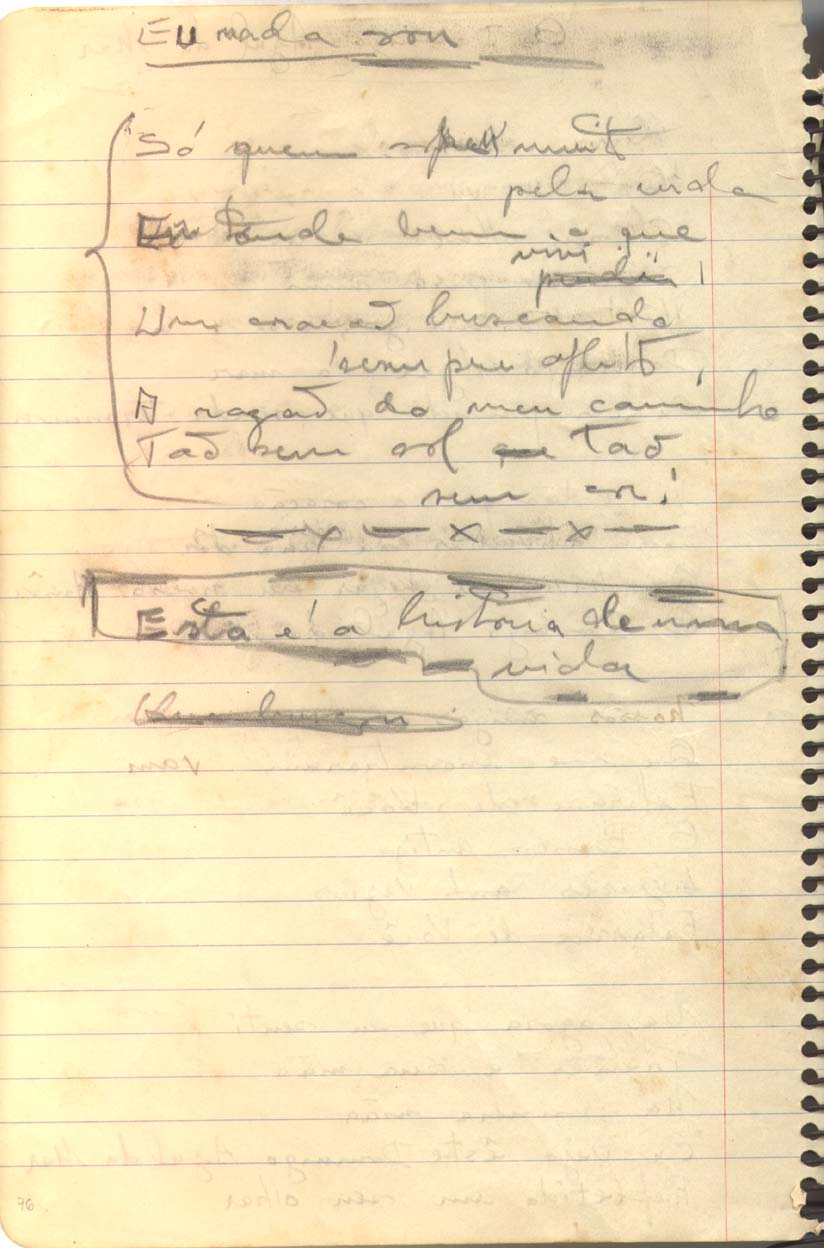 Eu nada sou
Só quem muito
pela vida
Entende bem o que
vivi
perdi!
Um coração buscando
sempre aflito,
A razão do meu caminho
Tão sem sol e tão
sem cor!
— x — x — x —
Esta é a história de uma
vida
76